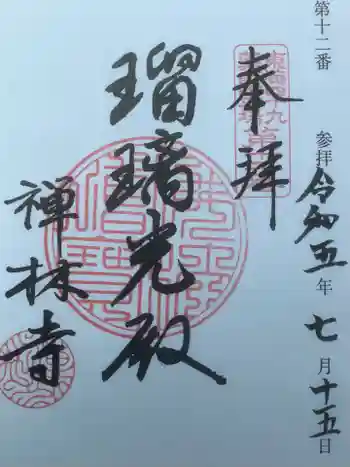 第十二番　参拝 令和五年 七月十五日
奉拝
瑠璃光殿
禅林寺